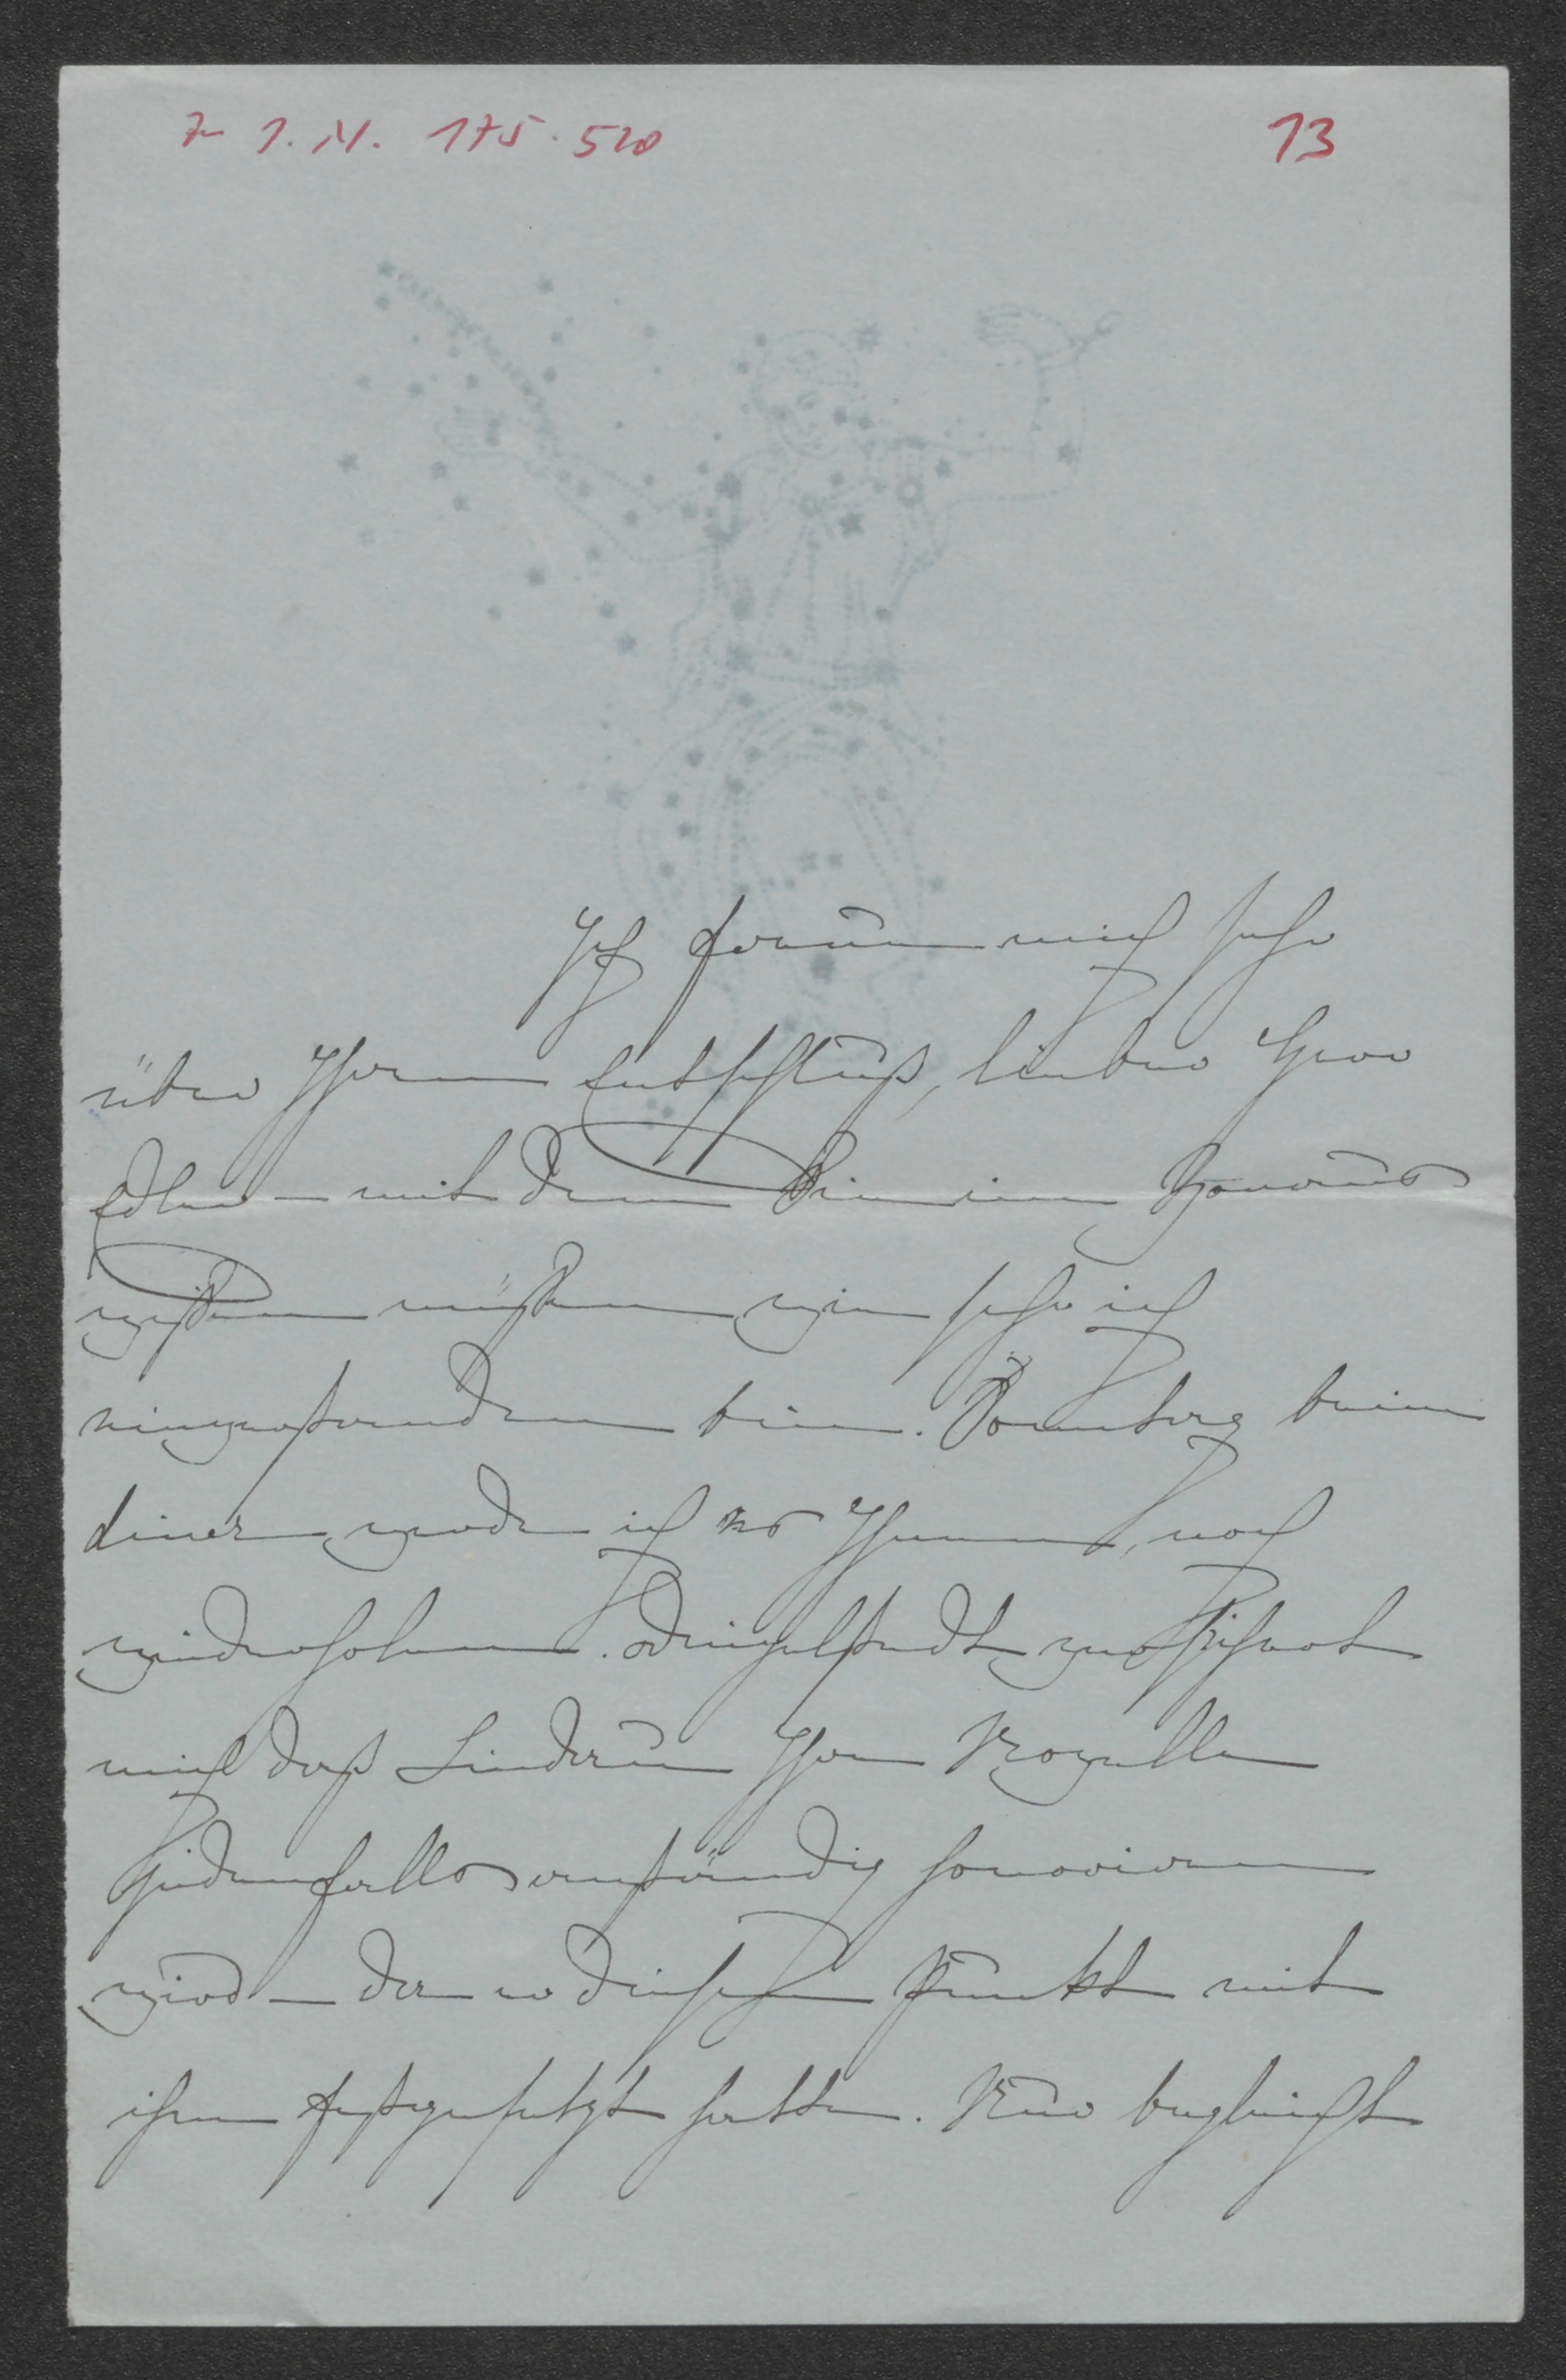 Z I. N. 175.520
13
Ich freue mich sehr
über Ihren Entschluß, lieber Herr
Edler – mit dem
müßen wir sehr ich
einverstanden bin. beim
diner werde ich es Ihnen, noch
wiederholen. Dingelstedt versichert
mich daß Lindau Ihre Novelle
jedenfalls anständig honoriren
wird – der er diesen Punkt mit
ihm festgesetzt hatte. Nur begleicht